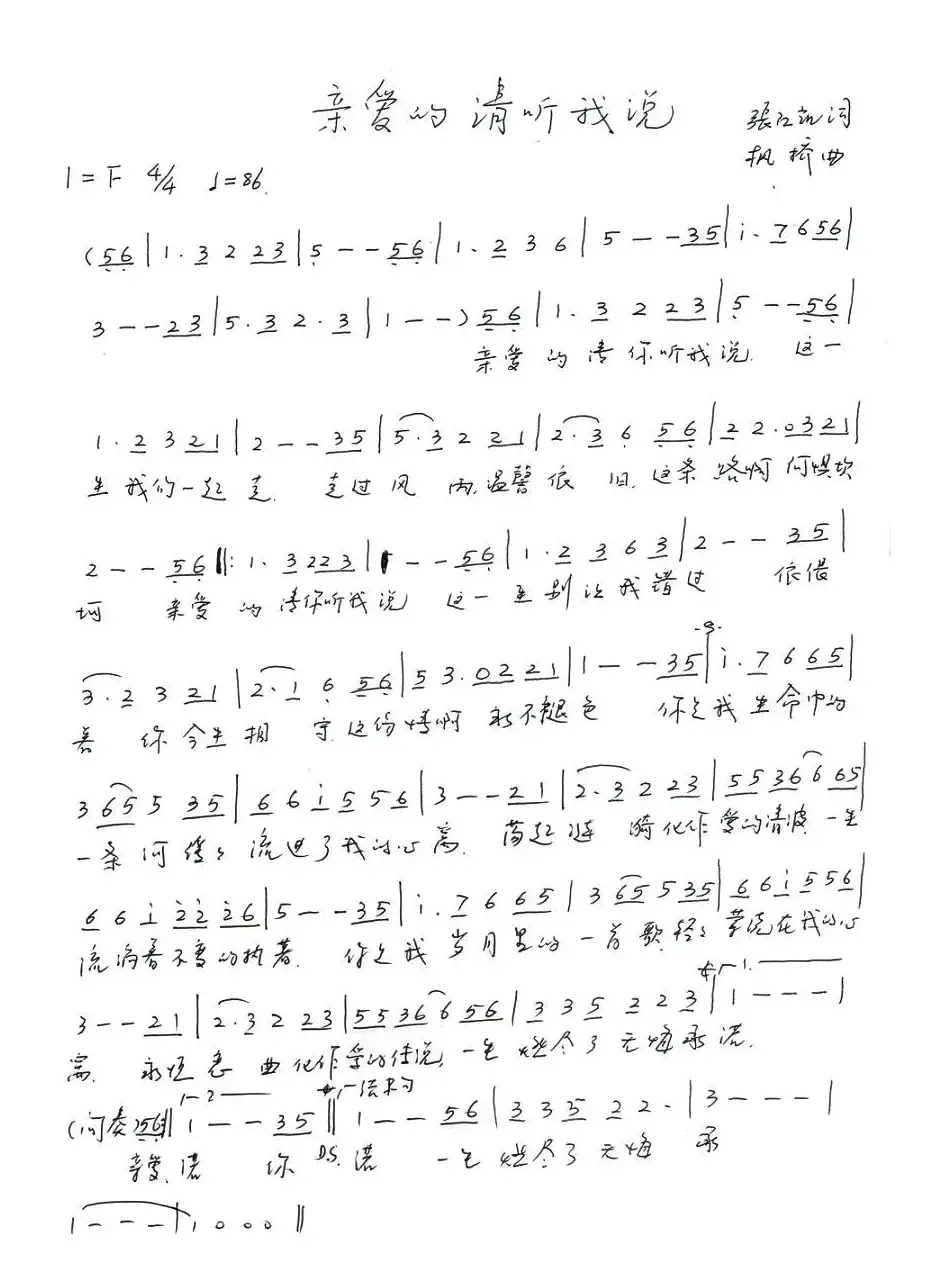 亲爱的请听我说
張江 词
枫桥曲
1=F 4/4 ♩=86.
(56|1.3 2 23|5--56|1.2 3 6|5--35|i.7 6 56|
3--23|5.3 2.3|1--)56|1.3 2 23|5--56|
亲爱的请你听我说. 这一
1.2 3 21|2--35|5.3 2 21|2.3 6 56|2 2.0321|
生我们一起走. 走过风雨,温馨依旧.这条路啊何惧坎
2--56‖:1.3223|--56|1.2 3 6 3|2--35|
坷 亲爱的请你听我说 这一生别让我错过 依偎
3.2 3 21|2.1 6 56|5 3.0221|1--35|i.7 6 65|
着 你今生相守这份情啊永不褪色 你是我生命中的
3 65 5 35|6 6 i 5 5 6|3--21|2.3 2 23|5536 6 65|
一条河缓缓流进了我的心窝. 荡起涟漪化作爱的清波一生
6 6 i 2 2 2 6|5--35|i.7 6 65|3 65 5 35|6 6 i 5 5 6|
流淌着不变的执着. 你是我岁月里的一首歌.轻轻萦绕在我的心
3--21|2.3 2 23|5536 6 56|3 3 5 2 2 3|1---|
窝. 永恒恋曲化作爱的传说,一生 尽了无悔承诺.
(间奏)56‖1--35‖1--56|3 3 5 2 2.|3---|
亲爱.诺 你 D.S.诺 一生 尽了无悔 承
1---|1 0 0 0‖